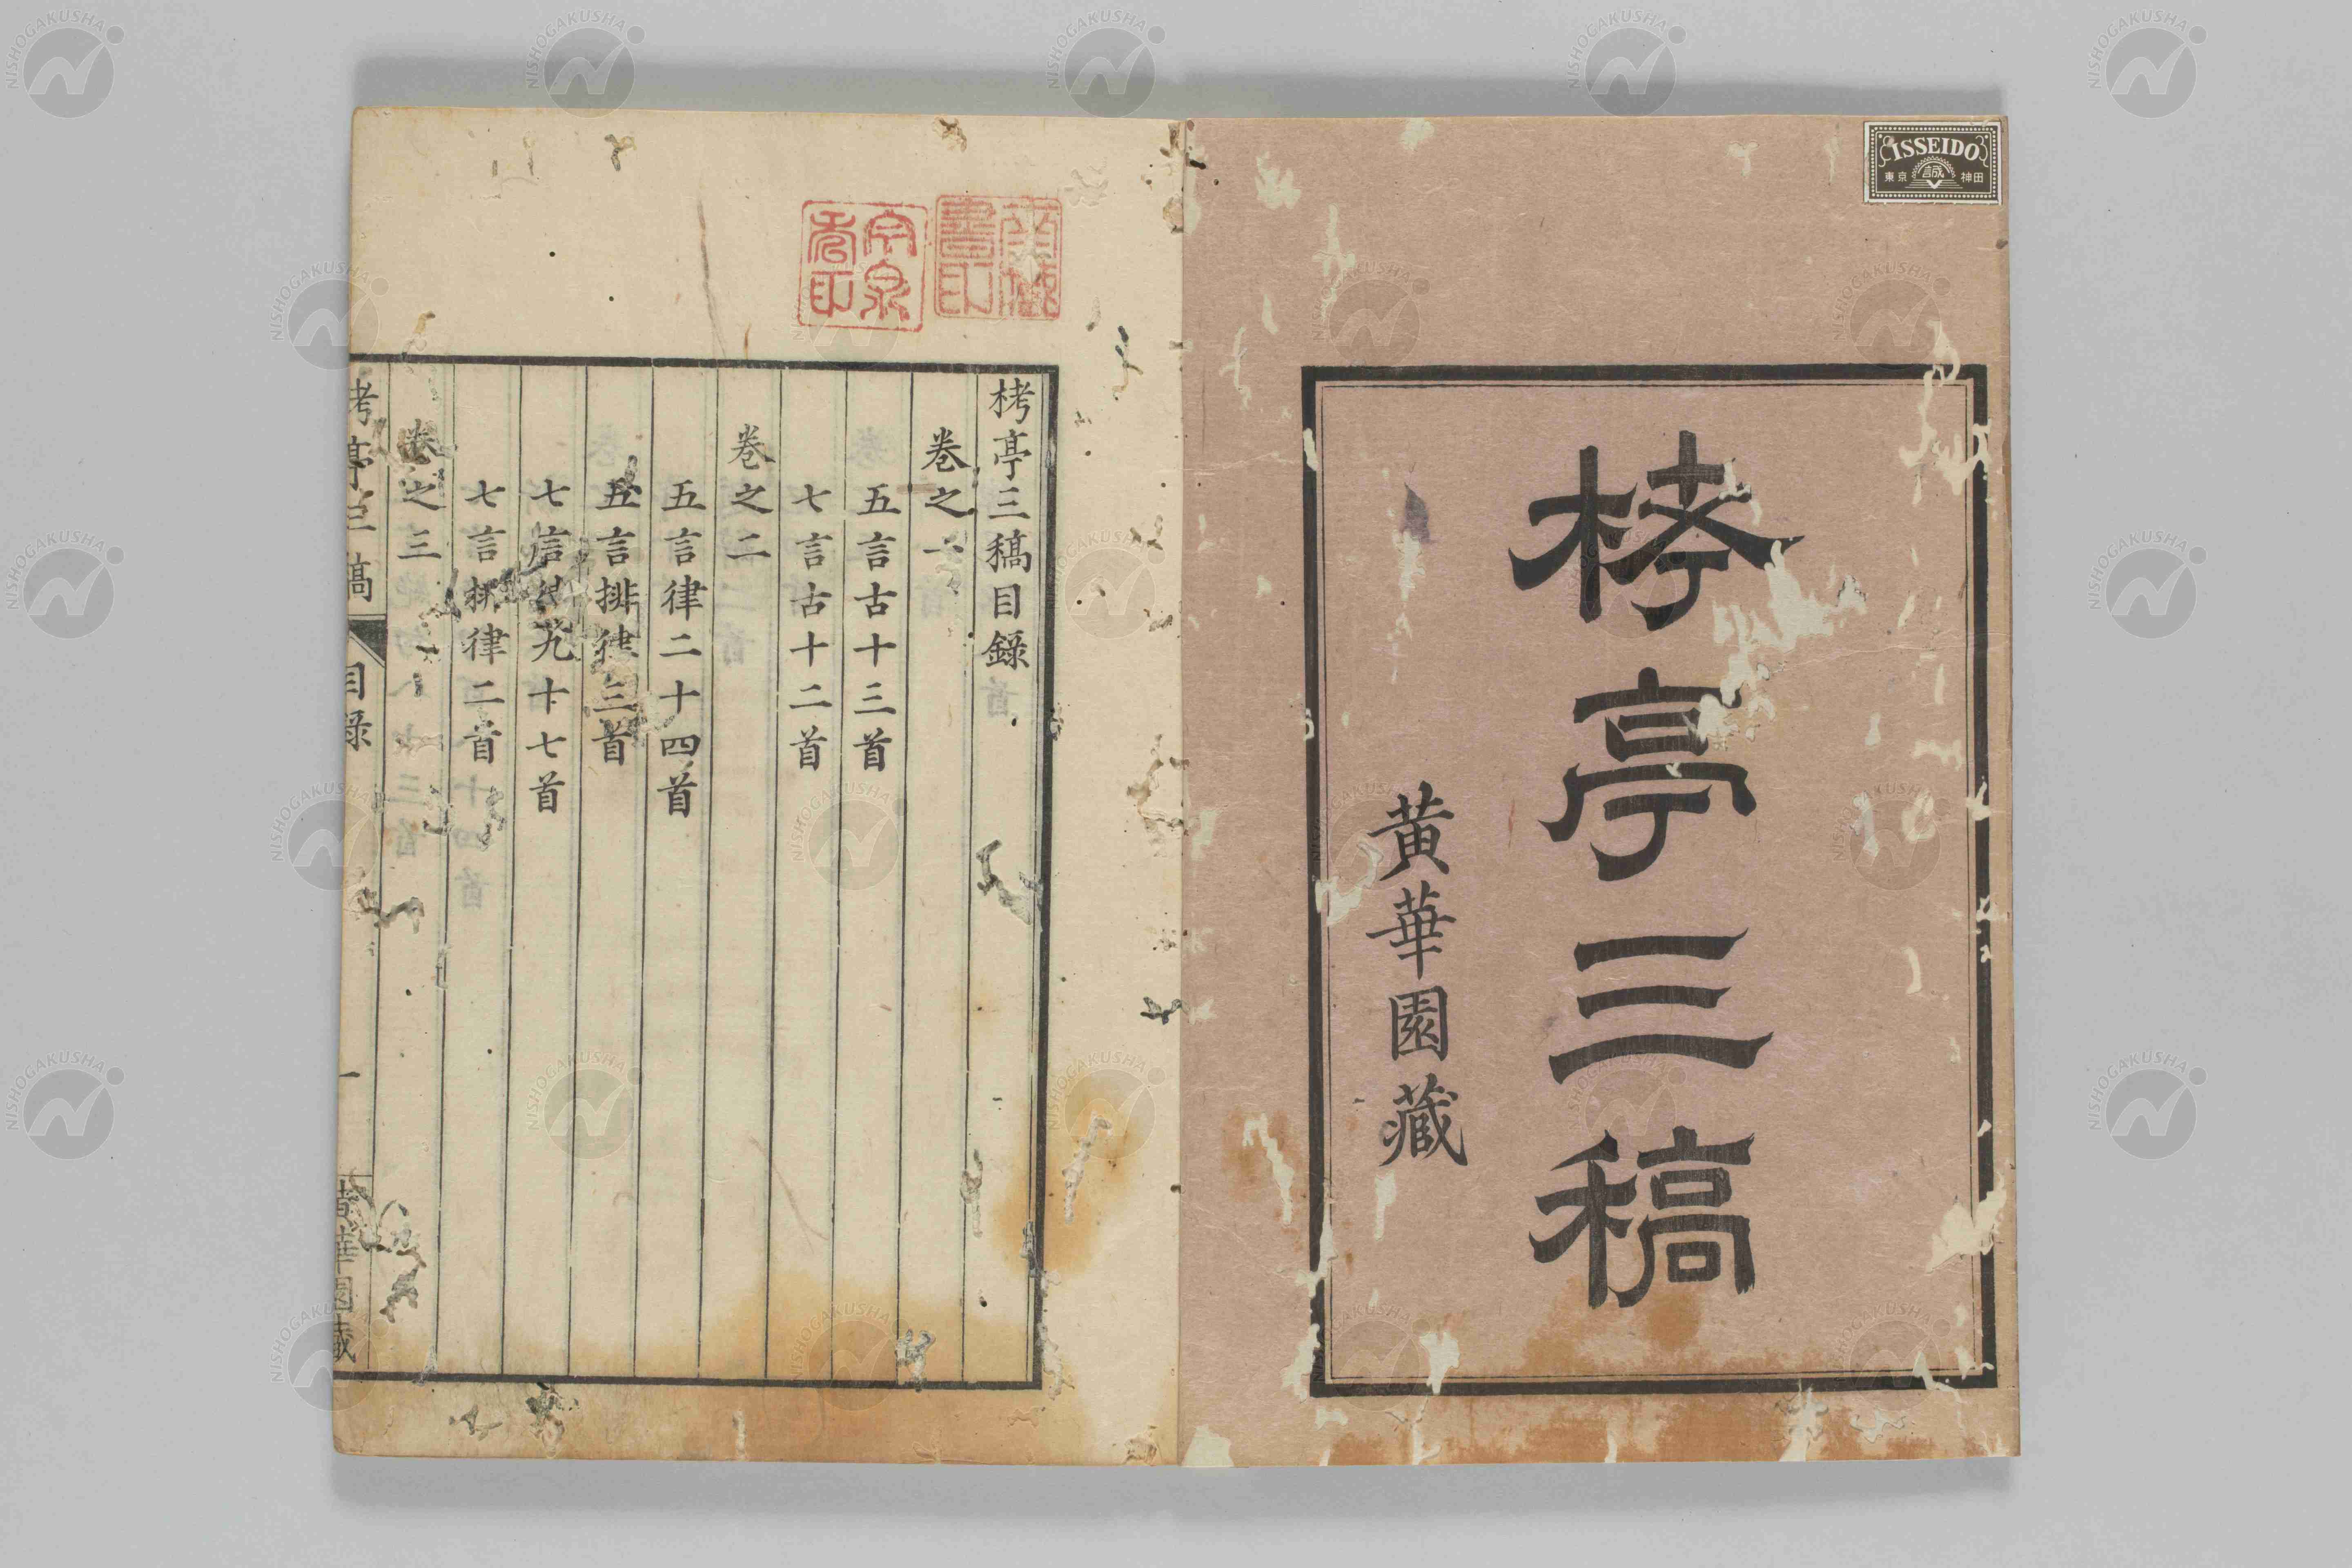 ISSEIDO
東京 誠 神田
栲亭三稿
黄華園藏
栲亭三稿目錄
卷之一
五言古十三首
七言古十二首
卷之二
五言律二十四首
五言排律三首
七言律九十七首
七言排律二首
卷之三
栲亭三稿 目錄 一 黄華園藏
NISHOGAKUSHA